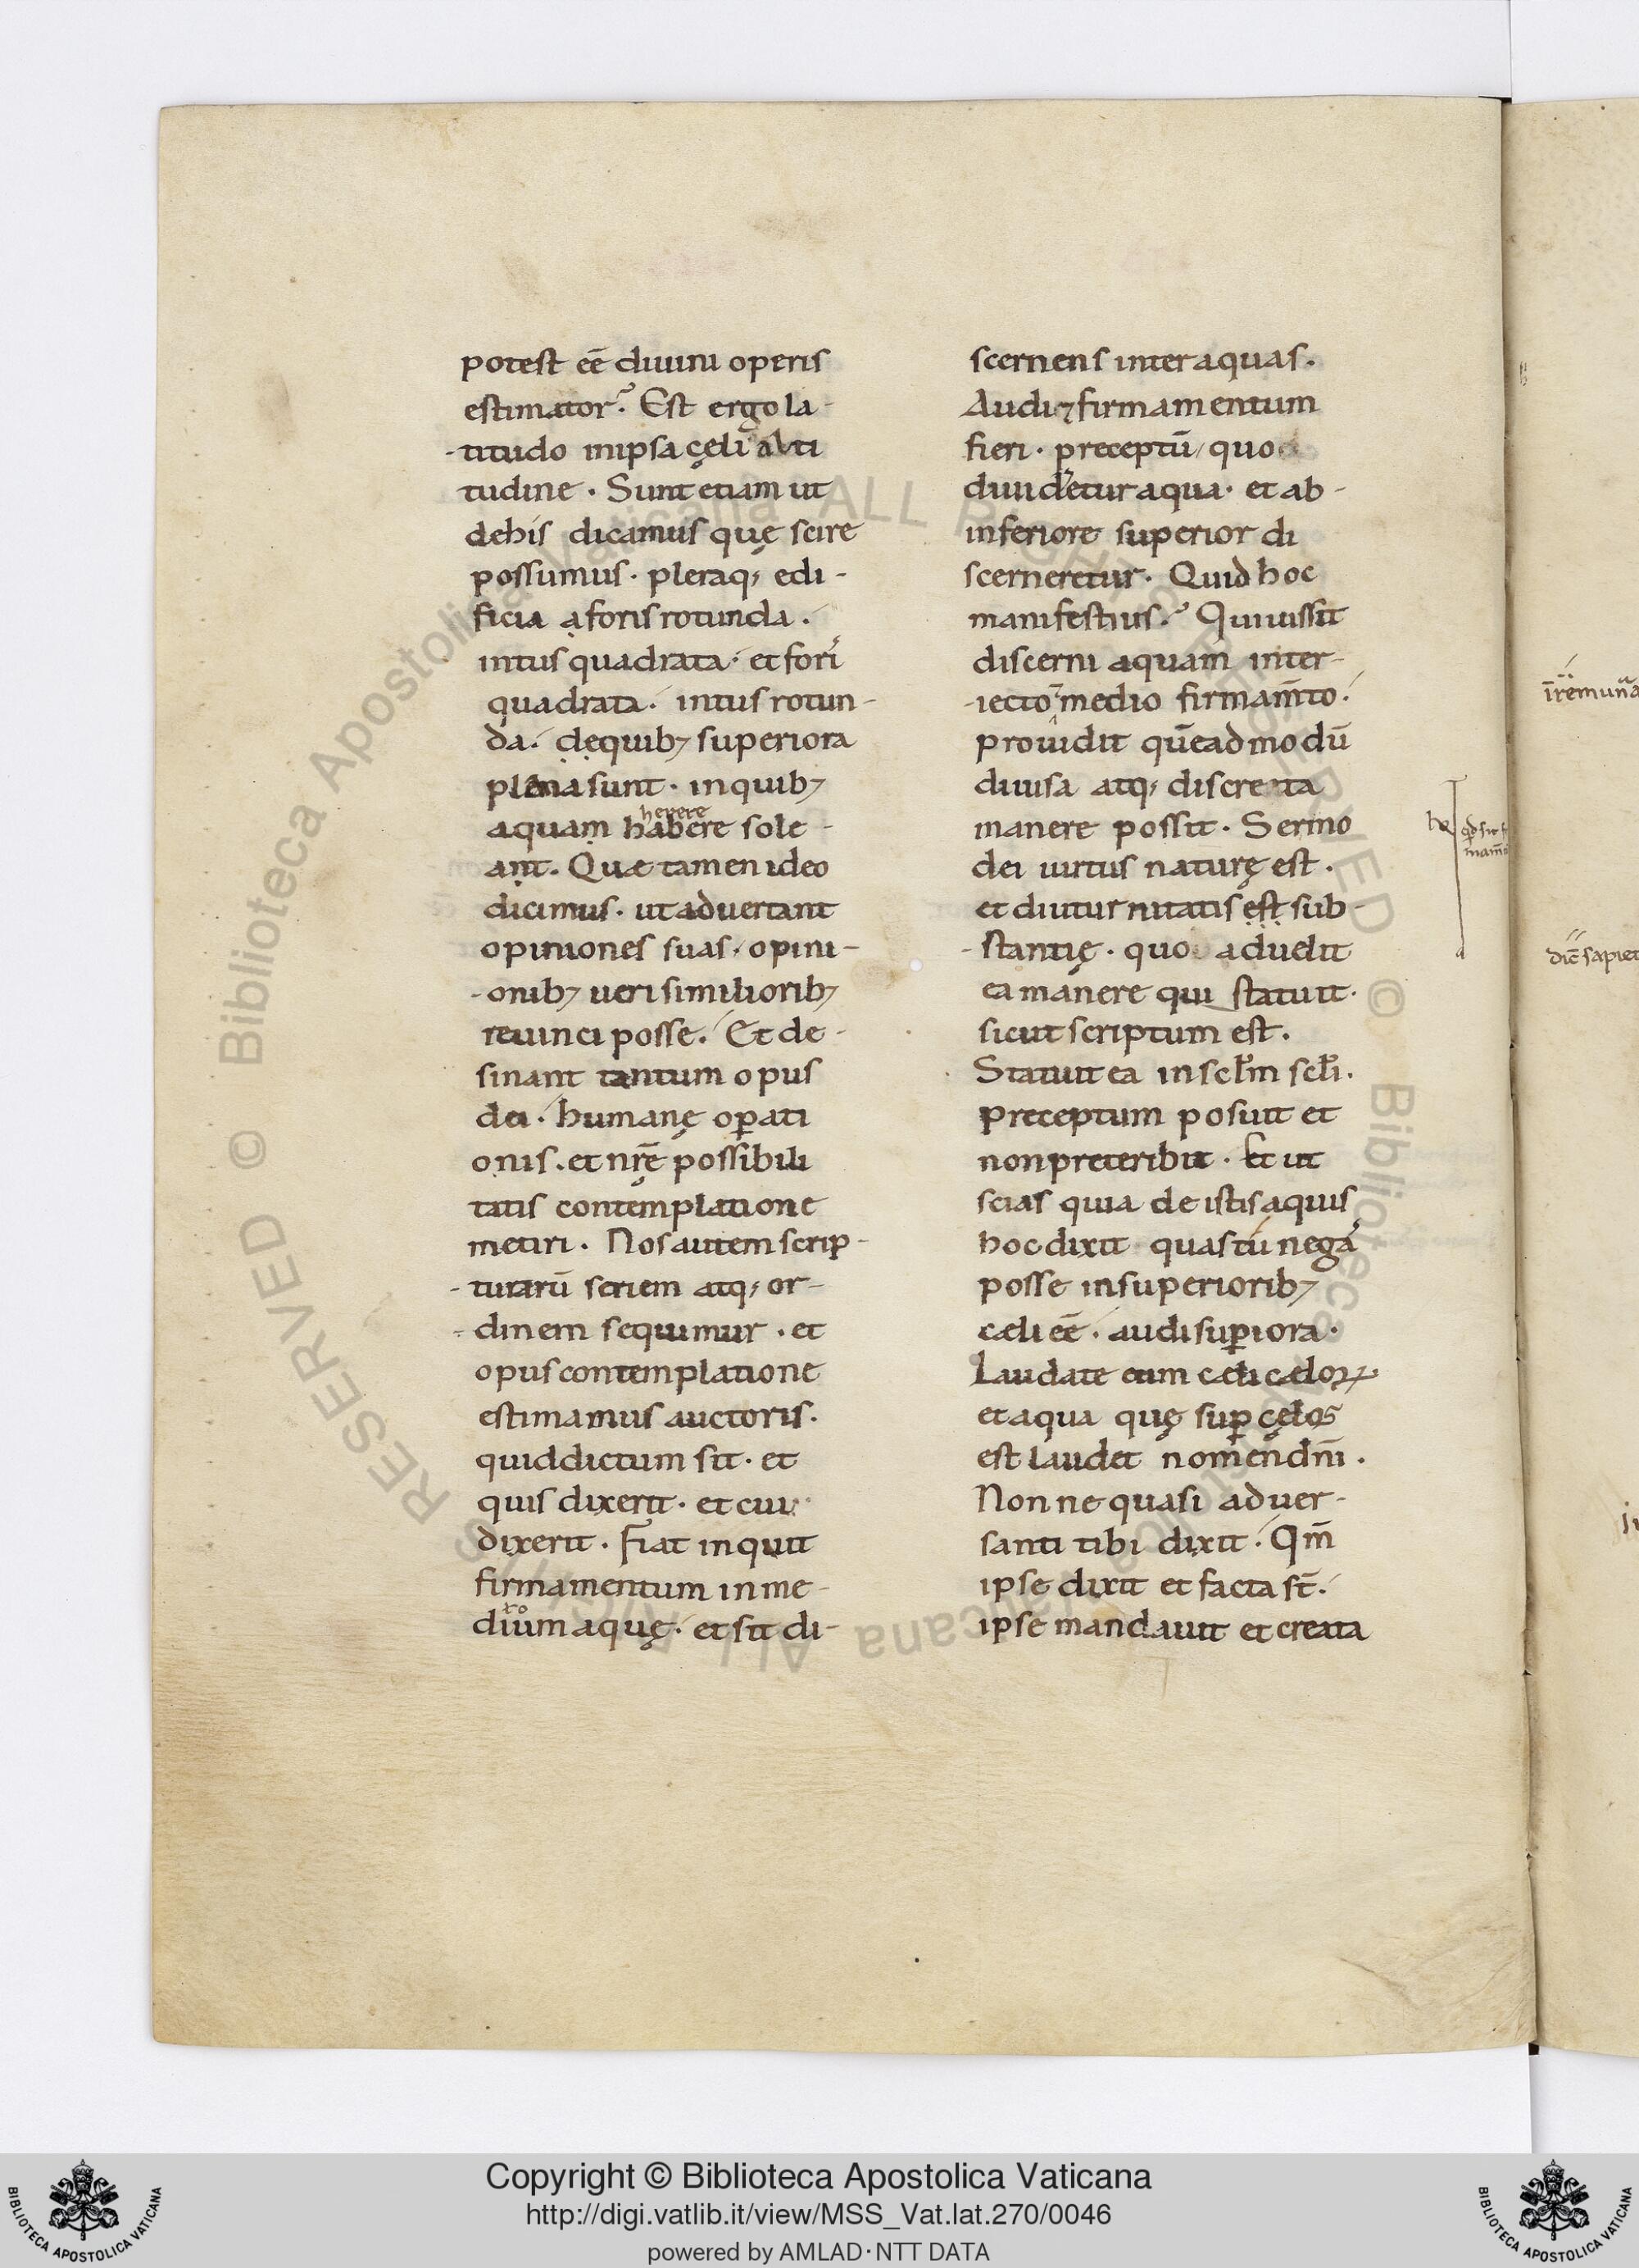 potest eē diuini operis
estimator? Est ergo la-
-titudo inipsa çeli alti
tudine. Sunt etiam ut
dehis dicamus quę scire
possumus. pleraq; edi-
ficia aforis rotunda.
intus quadrata. et fori
quadrata. intus rotun-
da. dequib; superiora
plana sunt. inquib;
herere
aquam habere sole-
ant. Quæ tamen ideo
dicimus. ut aduertant
opiniones suas. opini-
-onib; ueri similiorib;
reuinci posse. Et de-
sinant tantum opus
dei. humanę oꝑati
onis. et nr̄ę possibili
tatis contemplatione
metiri. Nos autem scrip-
-turarū seriem atq; or-
-dinem sequimur. et
opus contemplatione
estimamus auctoris.
quid dictum sit. et
quis dixerit. et cui
dixerit. Fiat inquit
firmamentum in me-
dium aquę. et sit di-
scernens inter aquas.
Audi ⁊ firmamentum
fieri. preceptū, quo
diuideretur aqua. et ab-
inferiore superior di
scerneretur. Quid hoc
manifestius? Qui iussit
discerni aquam inter-
-iecto medio firmam̄to.
prouidit quēadmodū
diuisa atq; discreta
manere possit. Sermo
dei uirtus naturę est.
et diuturnitatis est sub-
-stantię. quo aduelit
ea manere qui statuit.
sicut scriptum est.
Statuit ea in sctm̄ sctī.
preceptum posuit et
non preteribit. Et ut
scias quia de istis aquis
hoc dixit quas tu nega
posse in superiorib;
cæli eē. audi suꝑiora.
Laudate eum cæli cæloꝝ
et aqua quę suꝑ çęlos
est laudet nomen dn̄i.
Nonne quasi aduer-
santi tibi dixit. Qm̄
ipse dixit et facta st̄.
ipse mandauit et creata
Copyright © Biblioteca Apostolica Vaticana
http://digi.vatlib.it/view/MSS_Vat.lat.270/0046
powered by AMLAD·NTT DATA
BIBLIOTECA APOSTOLICA VATICANA
BIBLIOTECA APOSTOLICA VATICANA